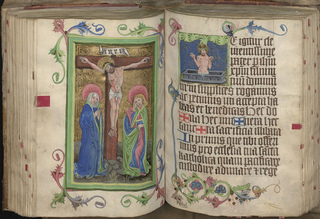 E igitur cle
mentissime
pater
filium
dominum
supplices rogamus
ac petimus uti accepta ha
beas et benedicas Hec do
na Hec munera hec
sancta sacrificia illibata
In primis que tibi offeri
mus pro ecclesia tua sancta
katholica quam pacificare
custodire adunare et rege